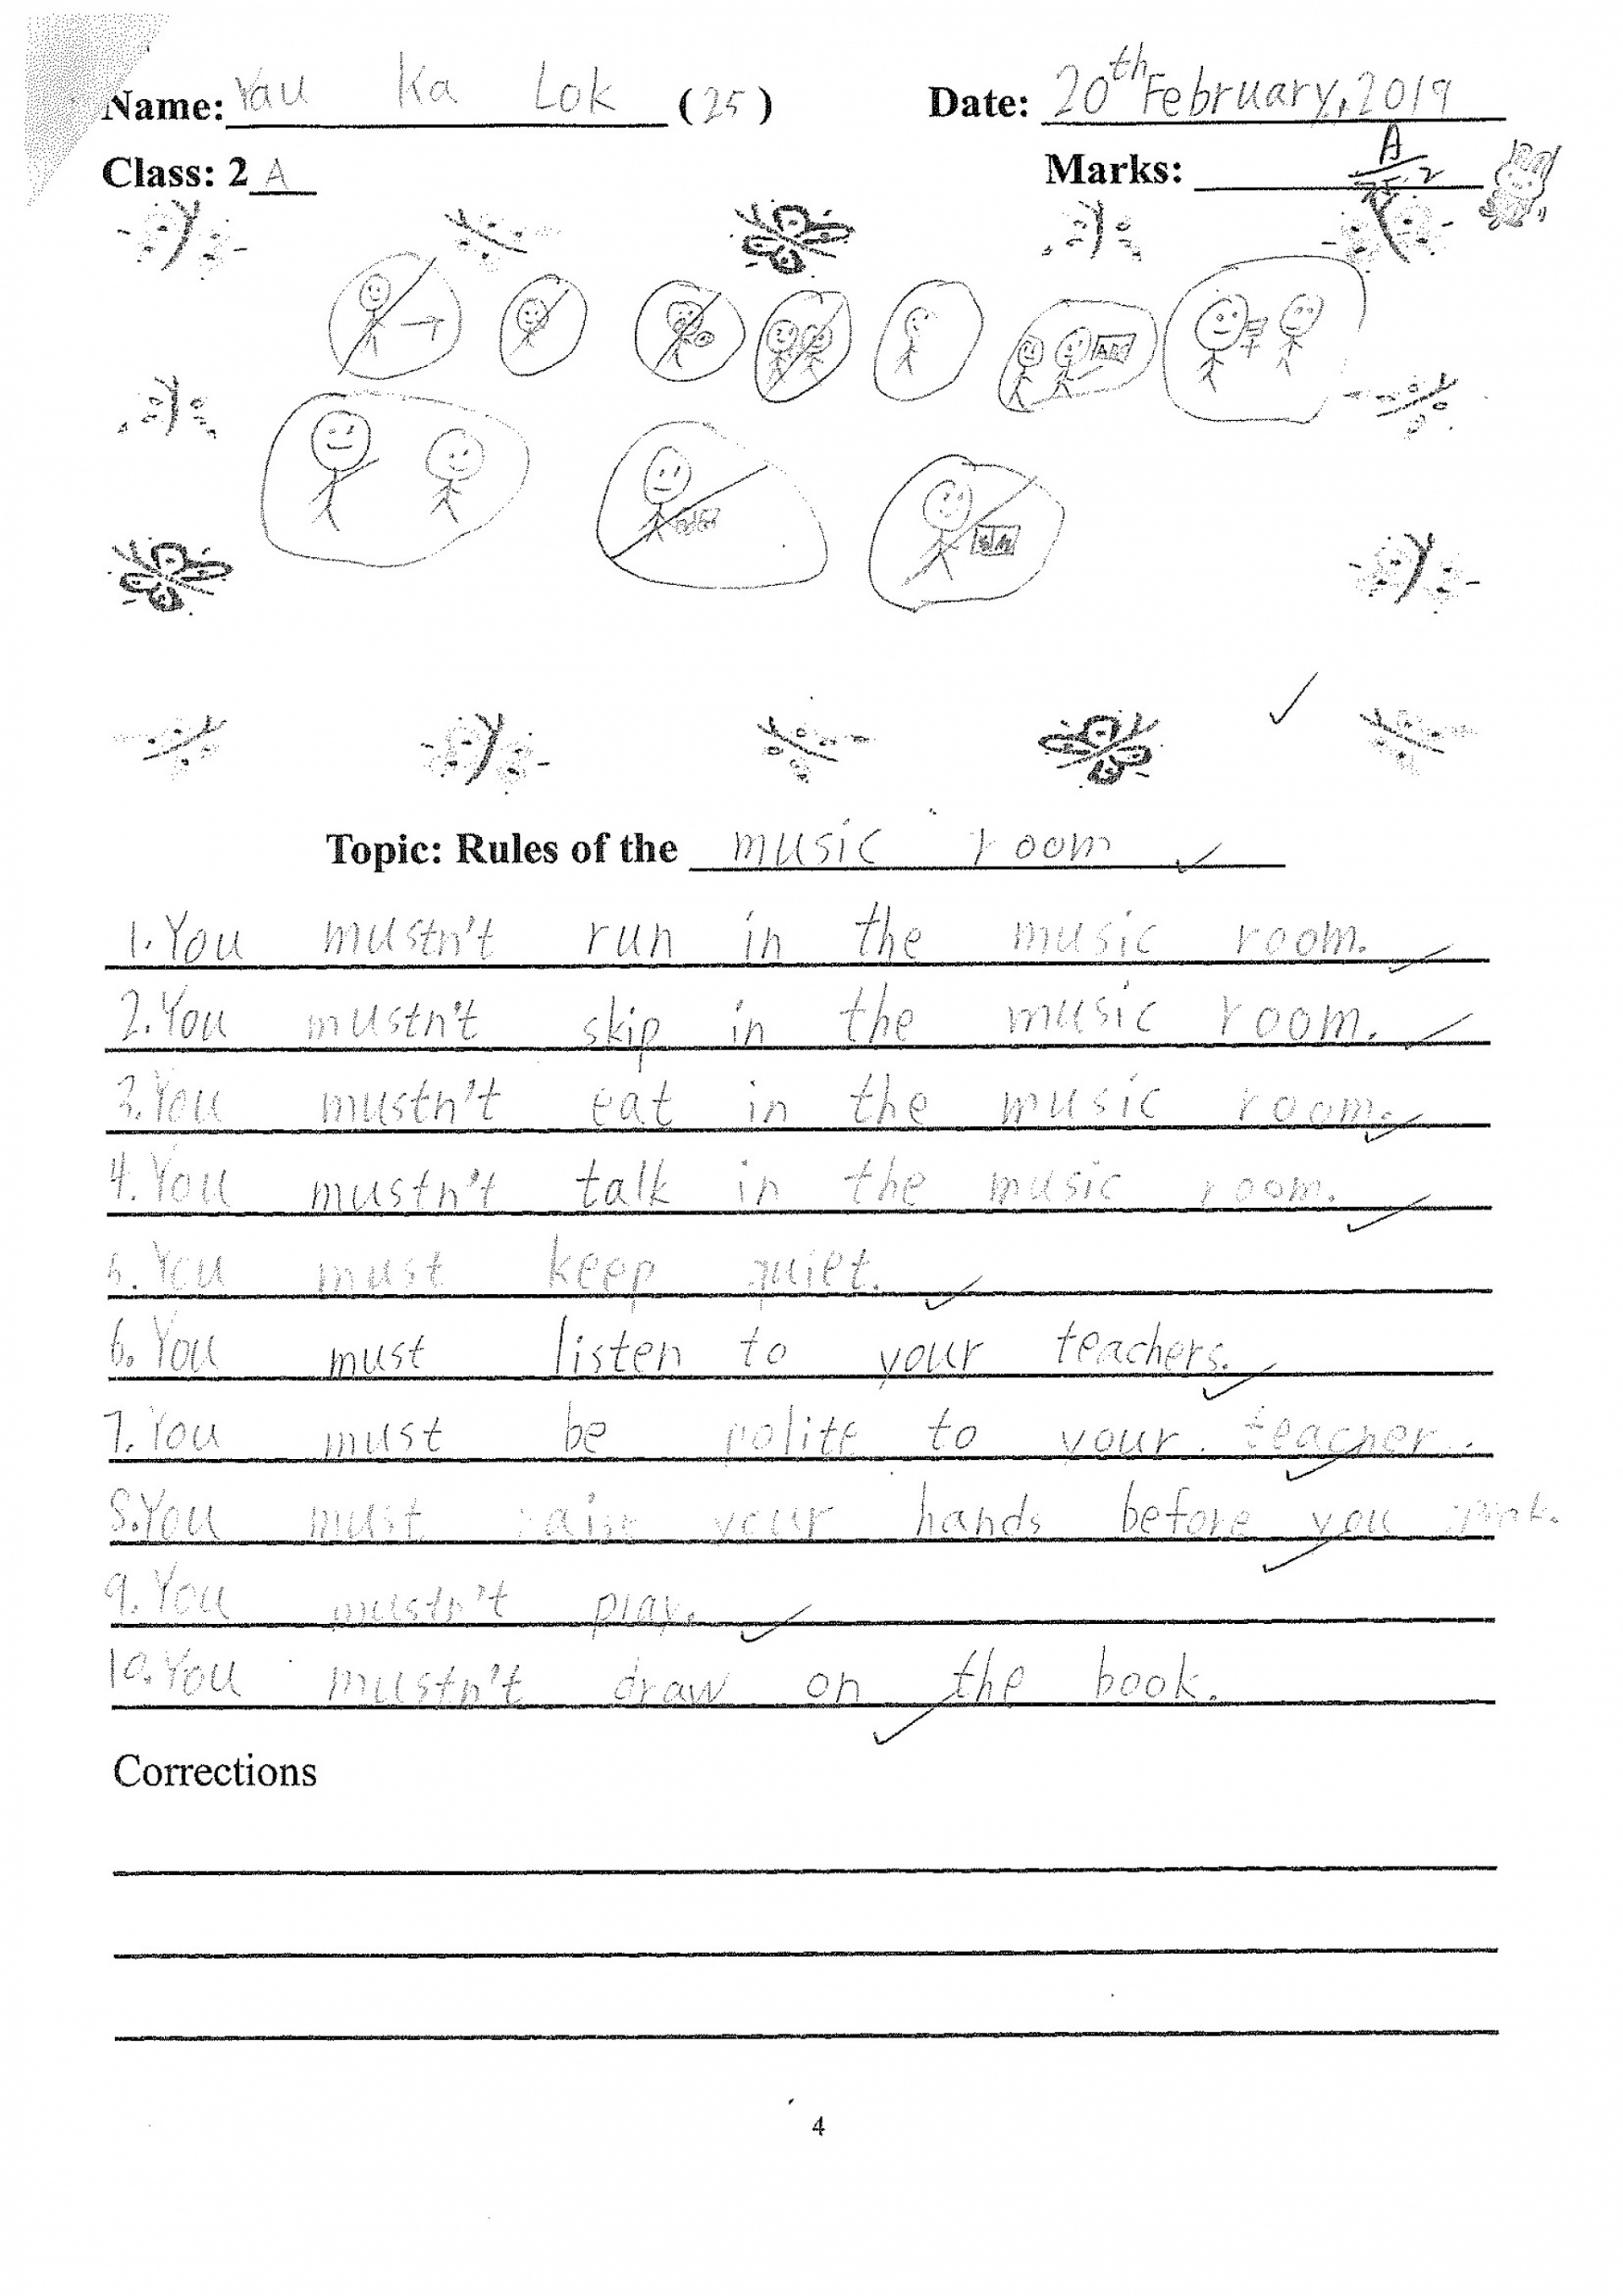 Name: Yau Ka Lok (25) Date: 20th February, 2019
Class: 2 A Marks: A
ABC
Topic: Rules of the music room
1. You mustn't run in the music room.
2. You mustn't skip in the music room.
3. You mustn't eat in the music room.
4. You mustn't talk in the music room.
5. You must keep quiet.
6. You must listen to your teachers.
7. You must be polite to your teacher.
8. You must raise your hands before you
9. You mustn't play.
10. You mustn't draw on the book.
Corrections
4